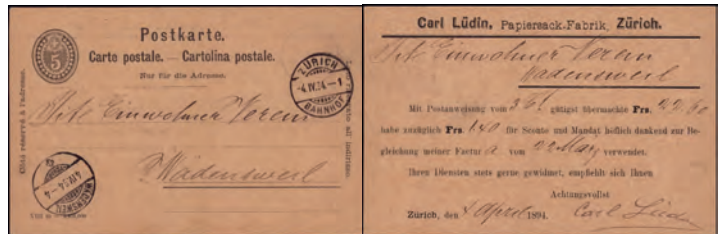 Postkarte.
Carte postale. — Cartolina postale.
Nur für die Adresse.
5
Côté réservé à l'adresse.
ZÜRICH
-4.IV.94.-1
BAHNHOF
Einwohner Verein
Wädensweil
WÄDENSWEIL
4.IV.94.-4
Carl Lüdin, Papiersack-Fabrik, Zürich.
Einwohner Verein
Wädensweil
Mit Postanweisung vom gütigst übermachte Frs. 22.60
habe zuzüglich Frs. 1.40 für Sconto und Mandat höflich dankend zur Be-
gleichung meiner Factur a. vom 22 März verwendet.
Ihren Diensten stets gerne gewidmet, empfiehlt sich Ihnen
Achtungsvollst
Zürich, den 4 April 1894. Carl Lüdin